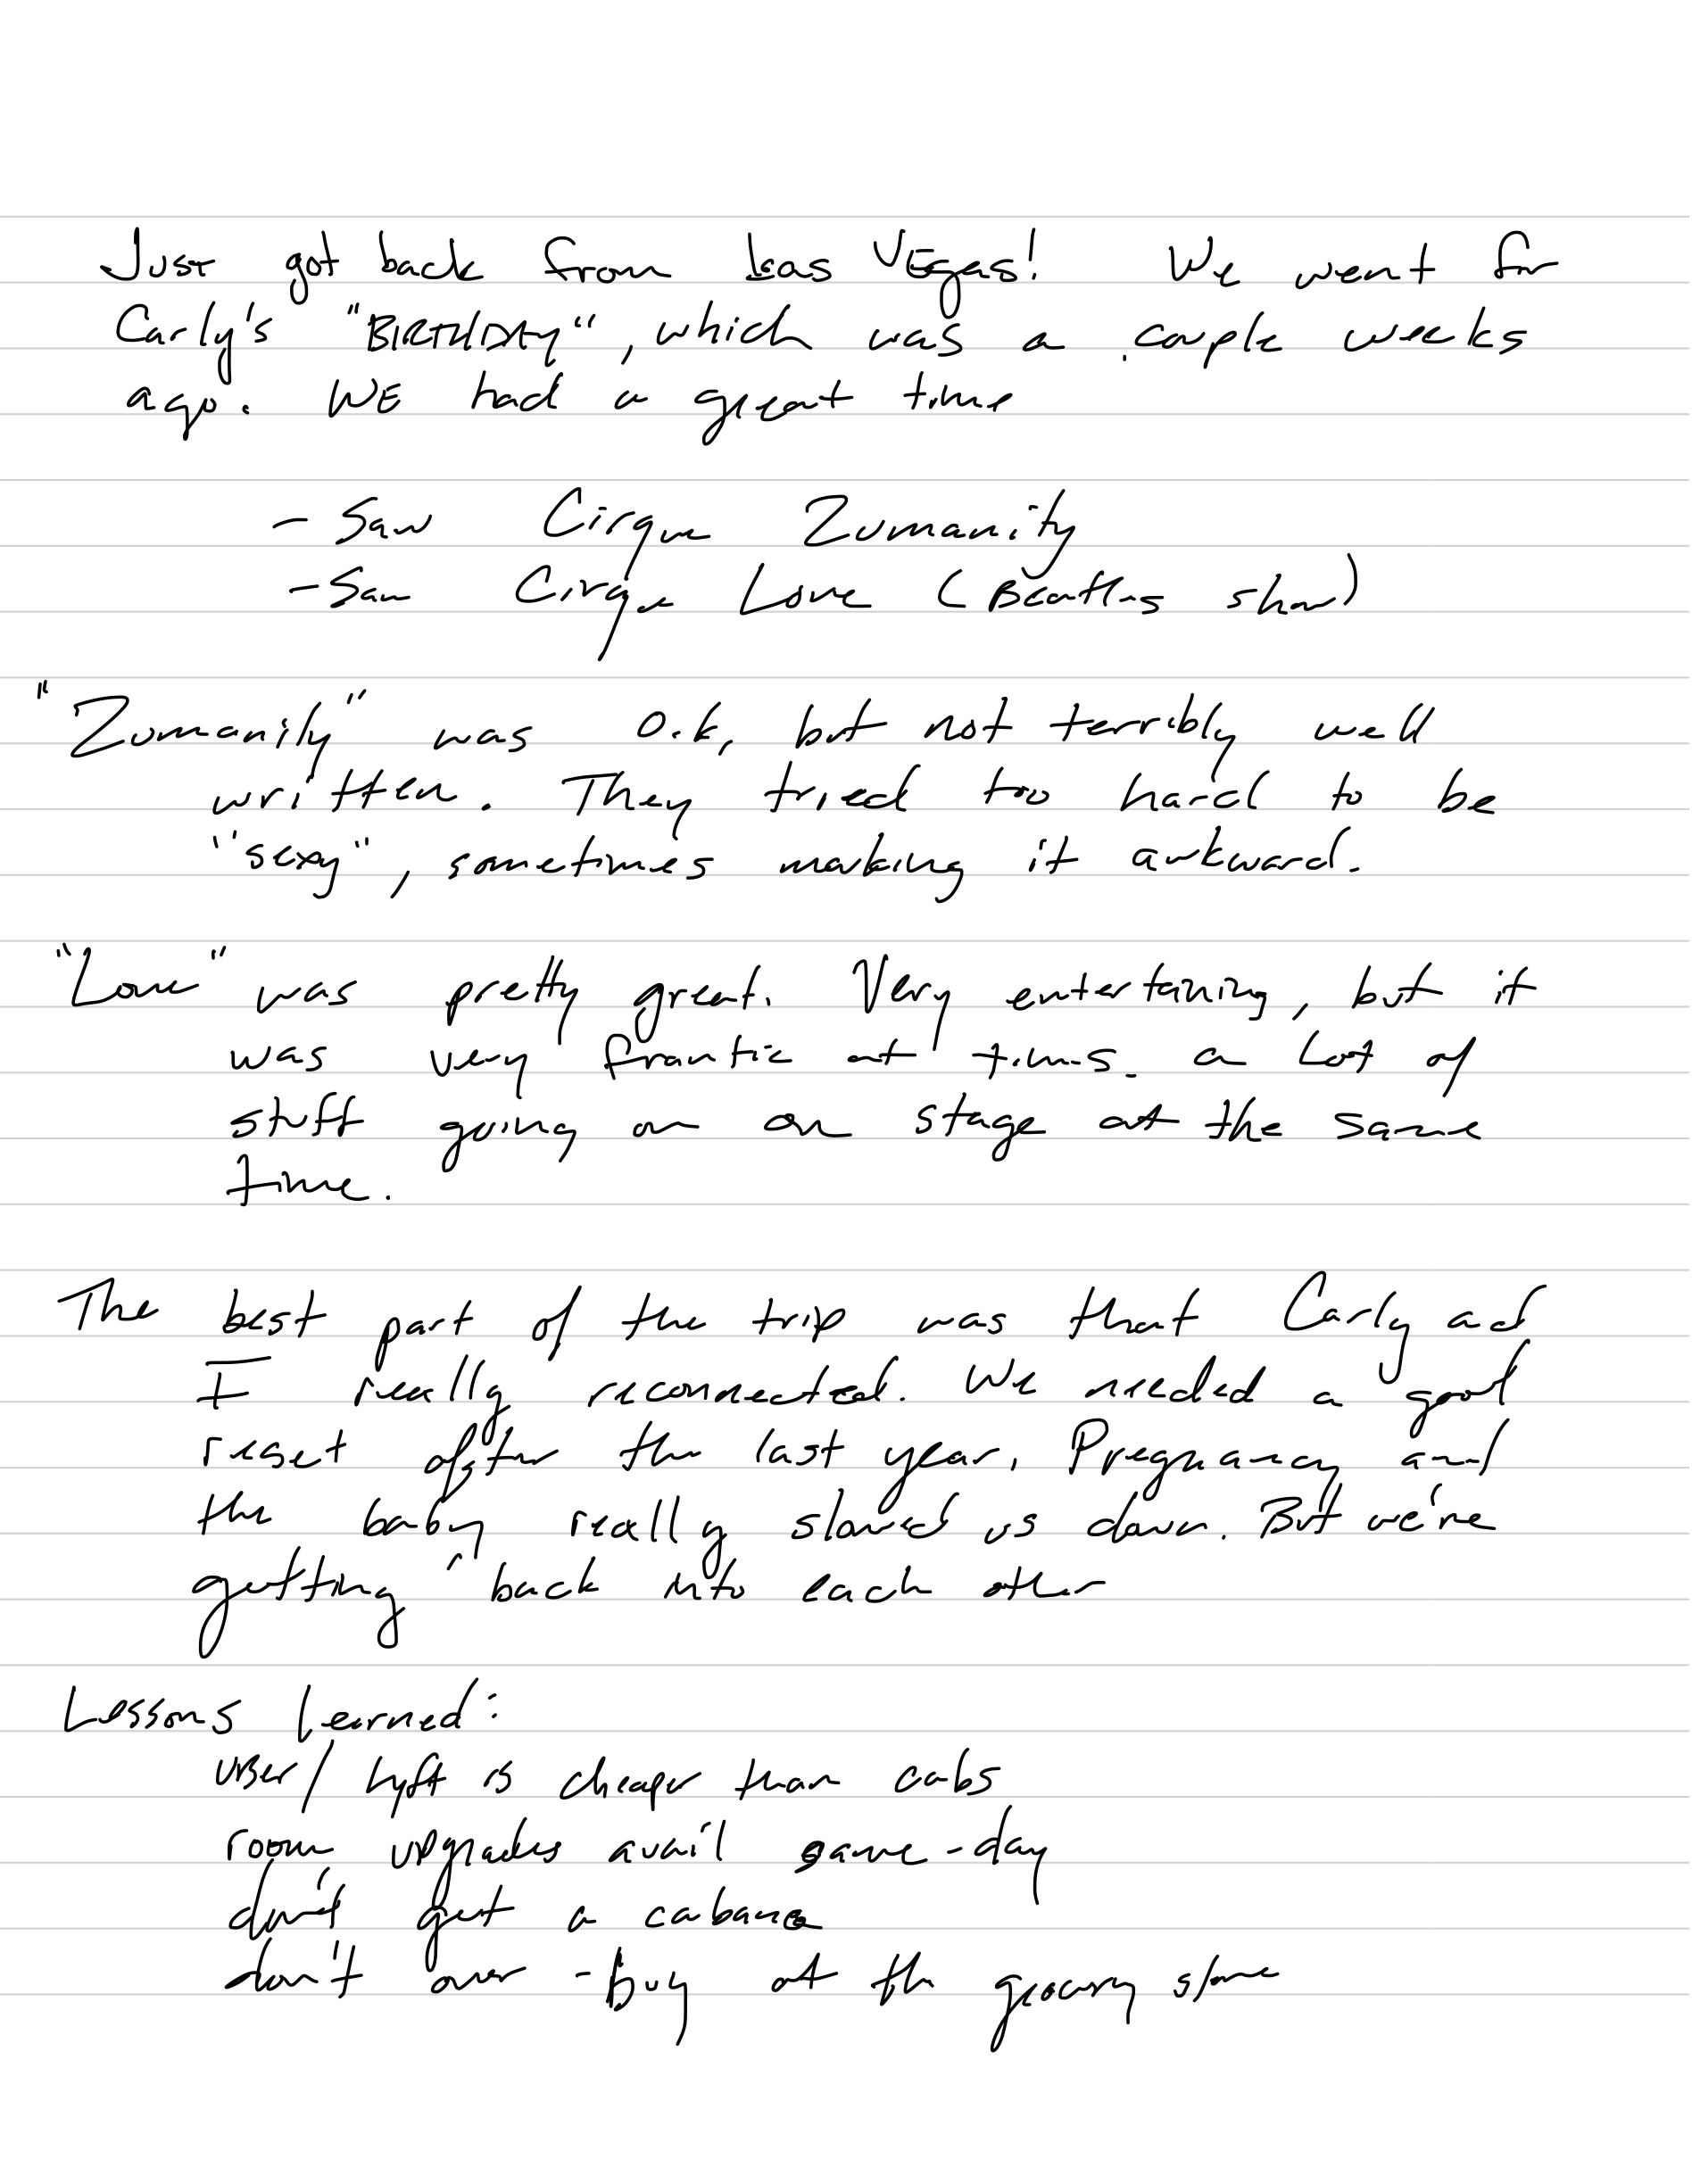 Just got back from Las VEgas! We went for
Carly's "BIRTHDAY", which was a couple weeks
ago. WE had a great time
- Saw Cirque Zumanity
- Saw Cirque Love (Beatles show)
"Zumanity" was O.k, but not terribly well
written. They tried too hard to be
"sexy", sometimes making it awkward.
"Love" was pretty great. Very entertaning, but it
was very frantic at times. a Lot of
stuff going on on stage at the same
time.
The best part of the trip was that Carly and
I really reconnected. We needed a good
reset after the last year. Pregnancy and
the baby really slowed us down. But we're
getting back into each other
Lessons Learned:
UBer/Lyft is cheaper than cabs
room upgrades avail same-day
don't get a cabana
don't over-buy at the grocery store